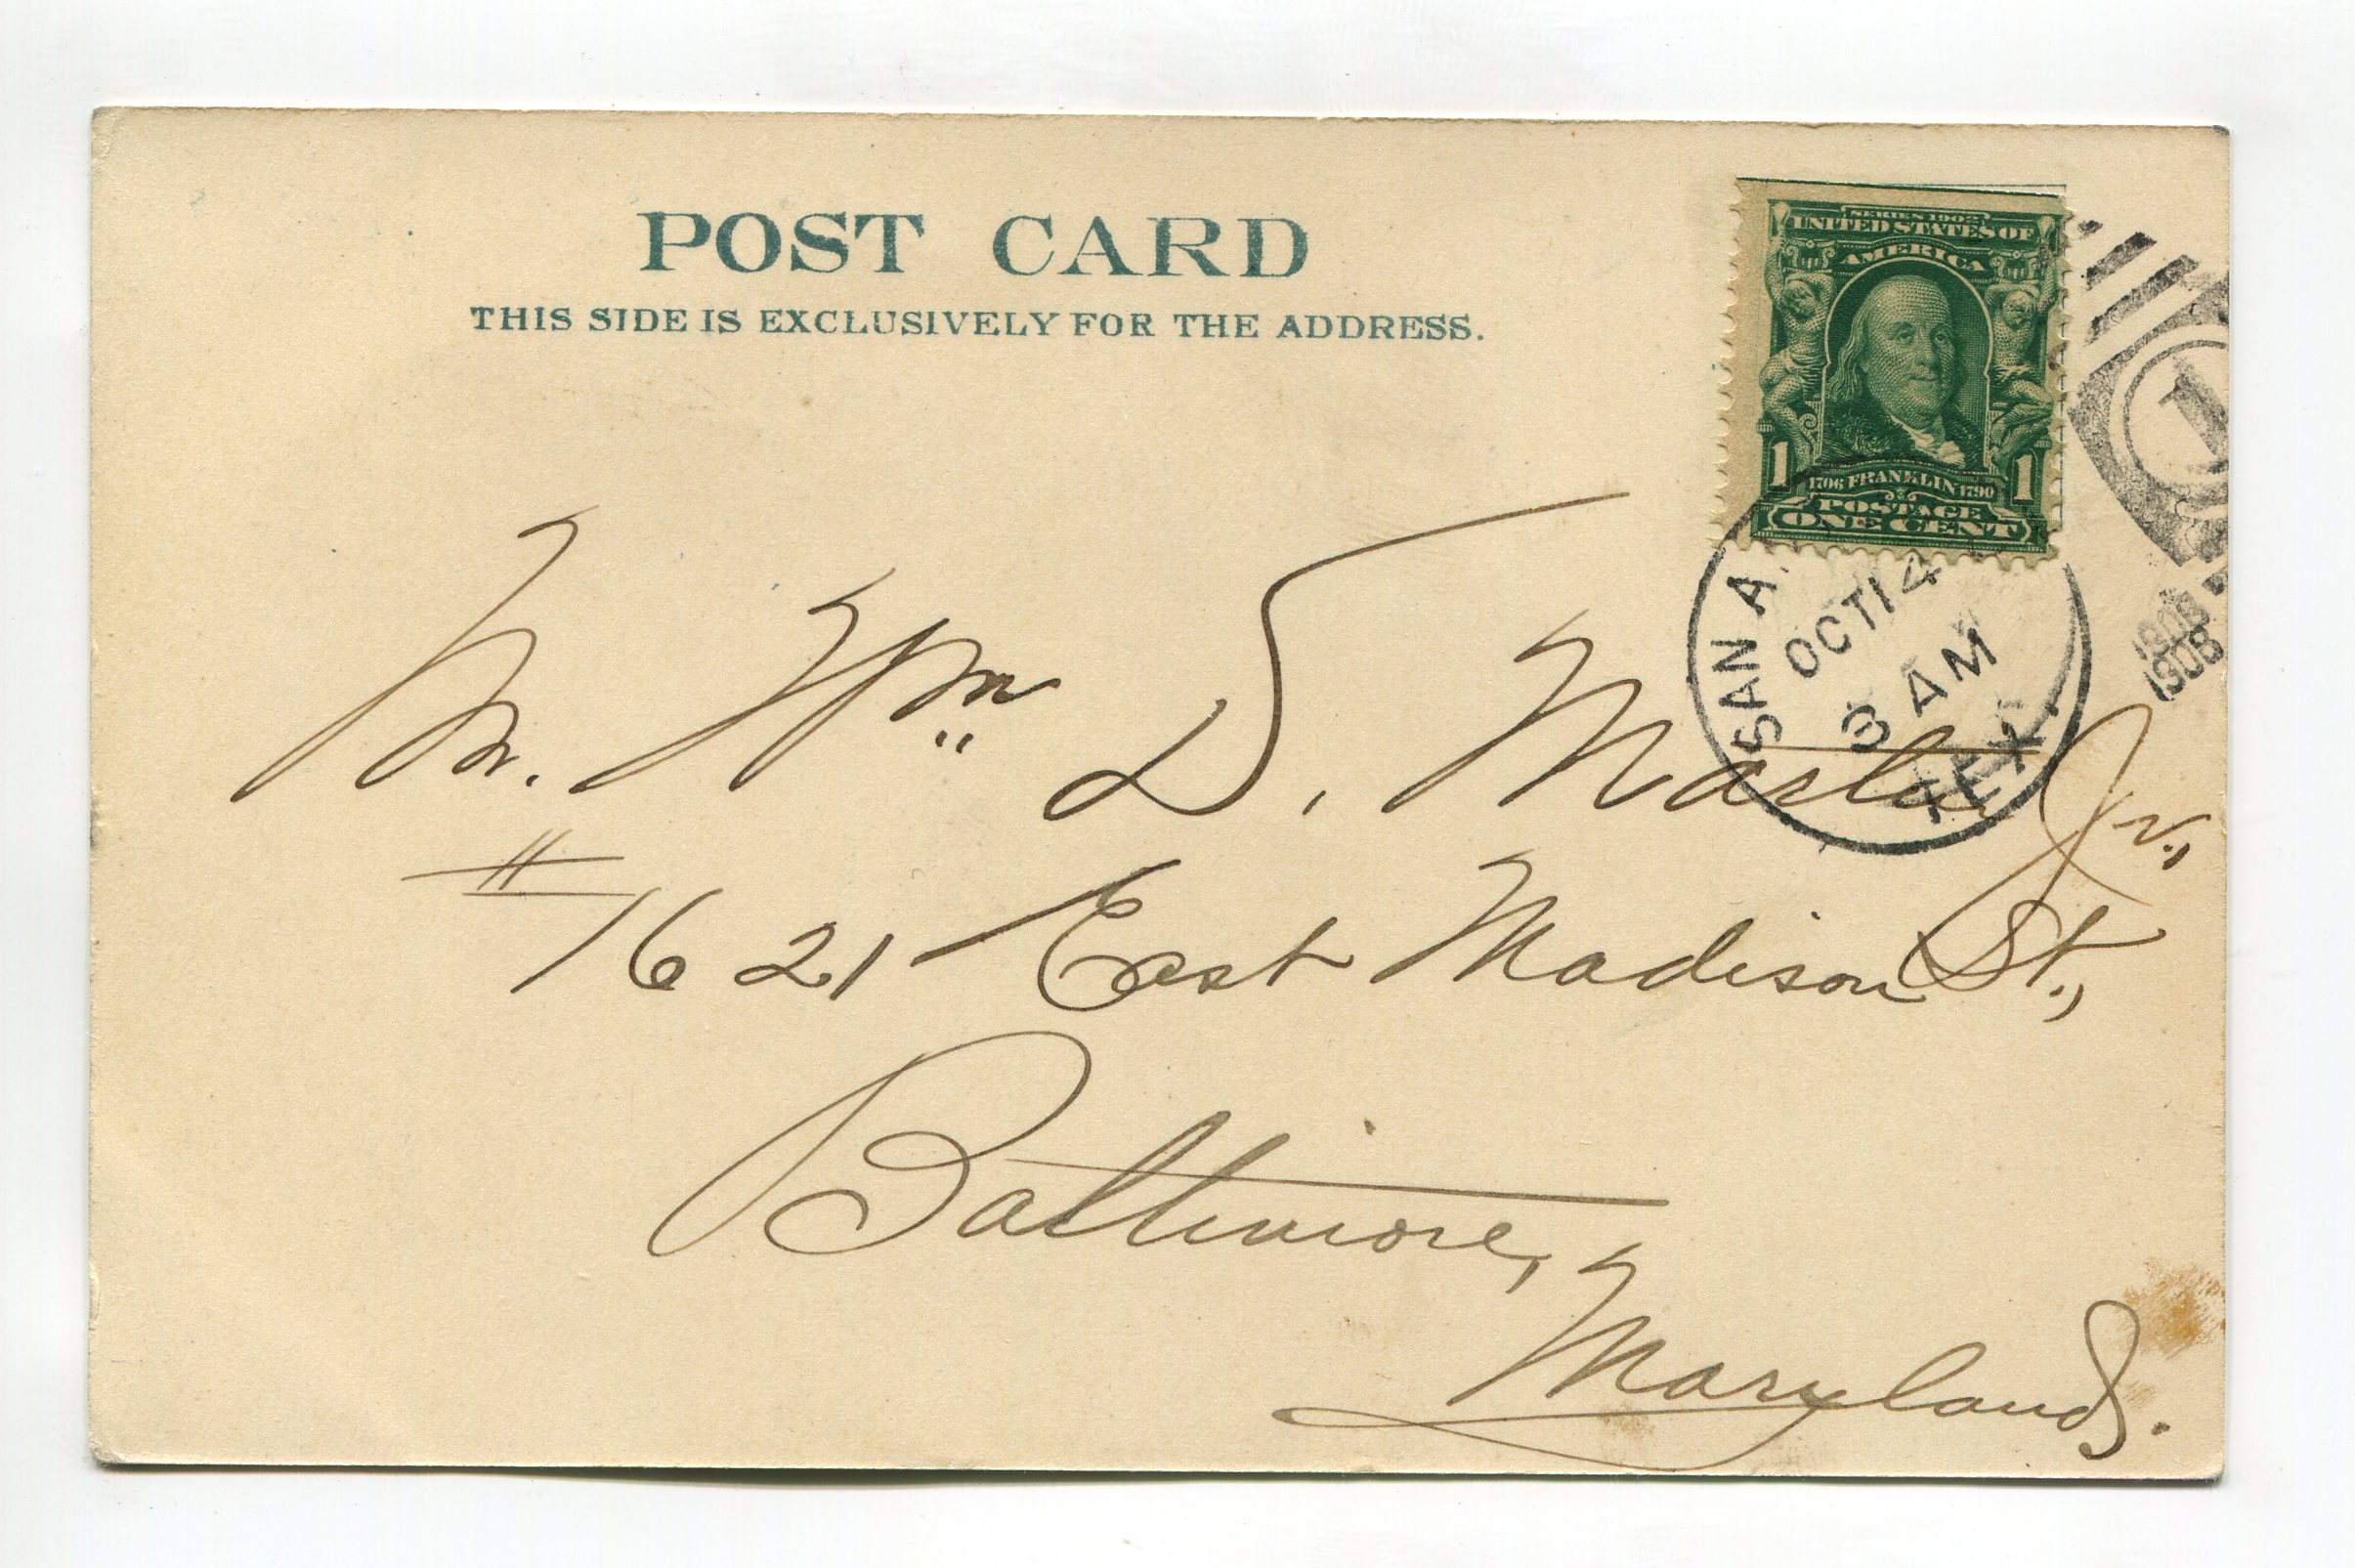 POST CARD
THIS SIDE IS EXCLUSIVELY FOR THE ADDRESS.
SERIES 1902
UNITED STATES OF
AMERICA
1 1
1706 FRANKLIN 1790
POSTAGE
ONE CENT
1
1908
1908
SAN A
OCT 14
3 AM
TEX.
Mr. Wm D. Jr.,
# 1621 East Madison St.,
Baltimore,
Maryland.